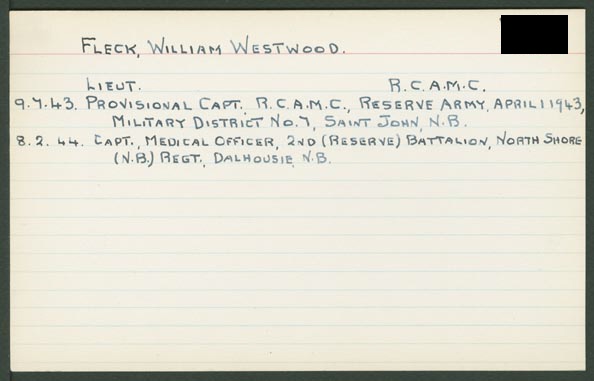 FLECK, WILLIAM WESTWOOD.
LIEUT. R.C.A.M.C.
9.7.43. PROVISIONAL CAPT. R.C.A.M.C., RESERVE ARMY, APRIL 1 1943,
MILITARY DISTRICT NO.7, SAINT JOHN, N.B.
8.2.44. CAPT., MEDICAL OFFICER, 2ND (RESERVE) BATTALION, NORTH SHORE
(N.B.) REGT., DALHOUSIE, N.B.